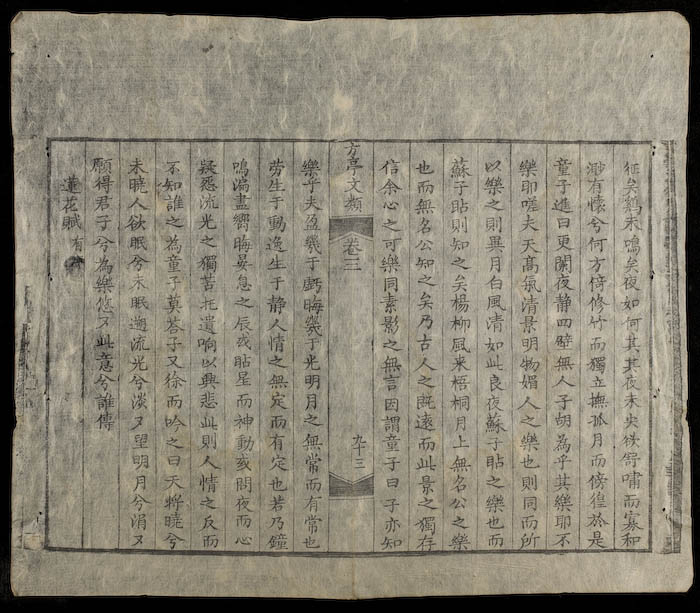 征矣鷄未鳴矣夜如何其其夜未央欲舒嘯而寡和
渺有懷兮何方倚修竹而獨立撫孤月而傍徨於是
童子進曰更闌夜静四壁無人子胡為乎其樂耶不
樂耶嗟夫天高氣清景明物媚人之樂也則同而所
以樂之則異月白風清如此良夜蘇子貼之樂也而
蘇子貼則知之矣楊柳風来梧桐月上無名公之樂
也而無名公知之矣乃古人之既遠而此景之獨存
信余心之可樂同素影之無言因謂童子曰子亦知
方亭文類 卷三 九十三
樂乎夫盈幾于虧晦幾于光明月之無常而有常也
勞生于動逸生于静人情之無定而有定也若乃鐘
鳴漏盡嚮晦宴息之辰或貼星而神動或問夜而心
疑悉流光之獨苦托遺响以興悲此則人情之反而
不知誰之為童子莫荅子又徐而吟之曰天將曉兮
未曉人欲眠兮未眠邀流光兮淡又望明月兮涓又
願得君子兮為樂悠又此意兮誰傳
蓮花賦 有